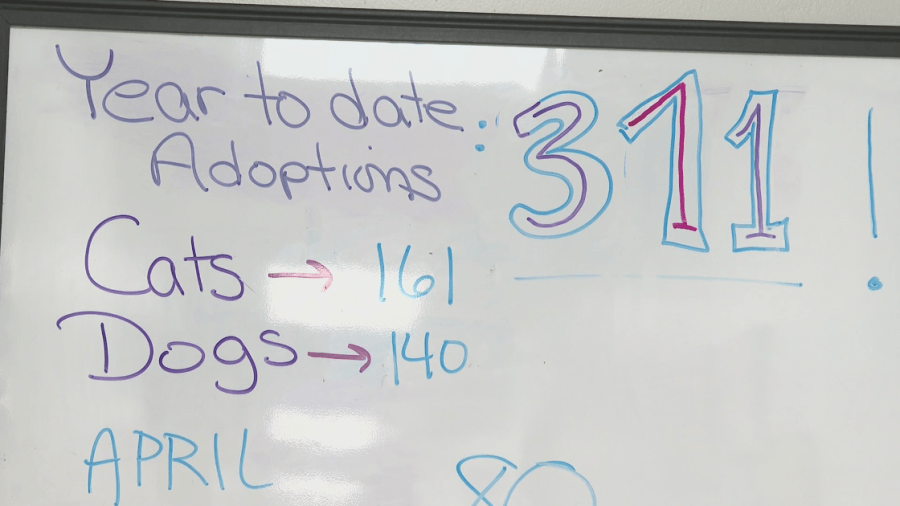 Year to date : 311!
Adoptions
Cats → 161
Dogs → 140
APRIL 80